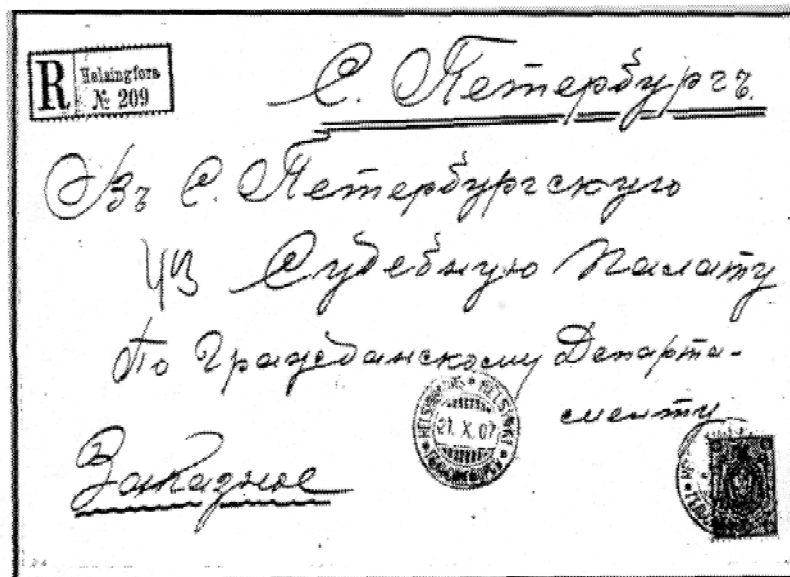 R Helsingfors
№ 209
С. Петербургъ.
Въ С. Петербургскую
Судебную Палату
По Гражданскому Департа-
менту
HELSINGFORS HELSINKI
21. X. 07
Заказное